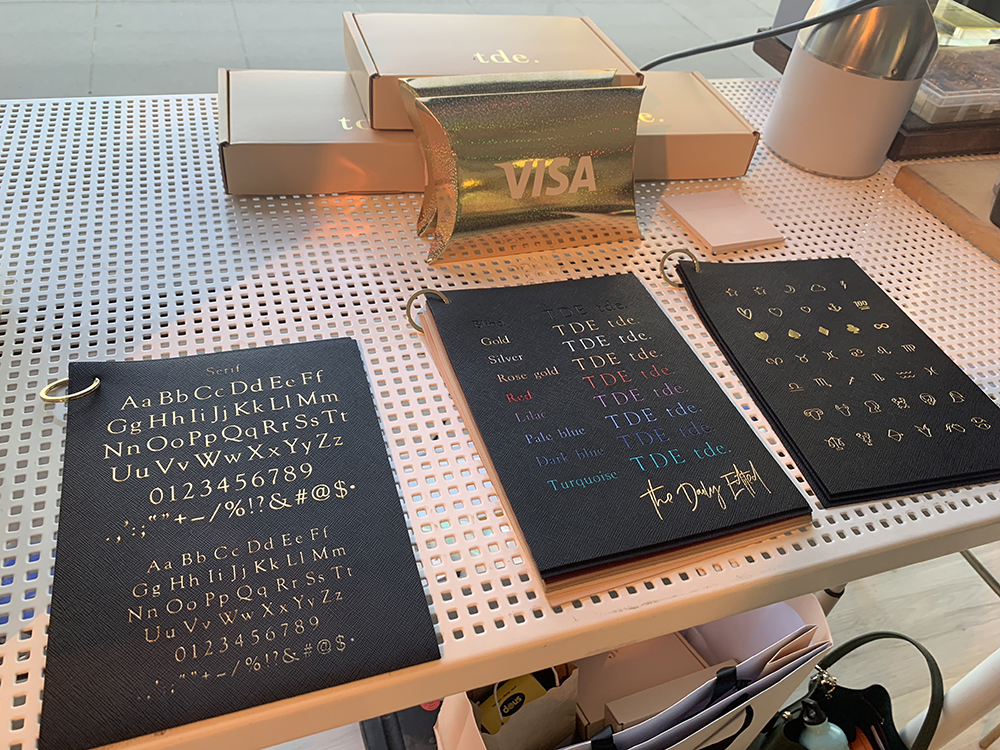 tde.
VISA
e.
Serif
Aa Bb Cc Dd Ee Ff
Gg Hh Ii Jj Kk Ll Mm
Nn Oo Pp Qq Rr Ss Tt
Uu Vv Ww Xx Yy Zz
0123456789
.,';:“”+–/%!?&#@$•
Aa Bb Cc Dd Ee Ff
Gg Hh Ii Jj Kk Ll Mm
Nn Oo Pp Qq Rr Ss Tt
Uu Vv Ww Xx Yy Zz
0123456789
.,';:“”+–/%!?&#@$•
Blind TDE tde.
Gold TDE tde.
Silver TDE tde.
Rose gold TDE tde.
Red TDE tde.
Lilac TDE tde.
Pale blue TDE tde.
Dark blue TDE tde.
Turquoise TDE tde.
the Daily Edited
100
deus